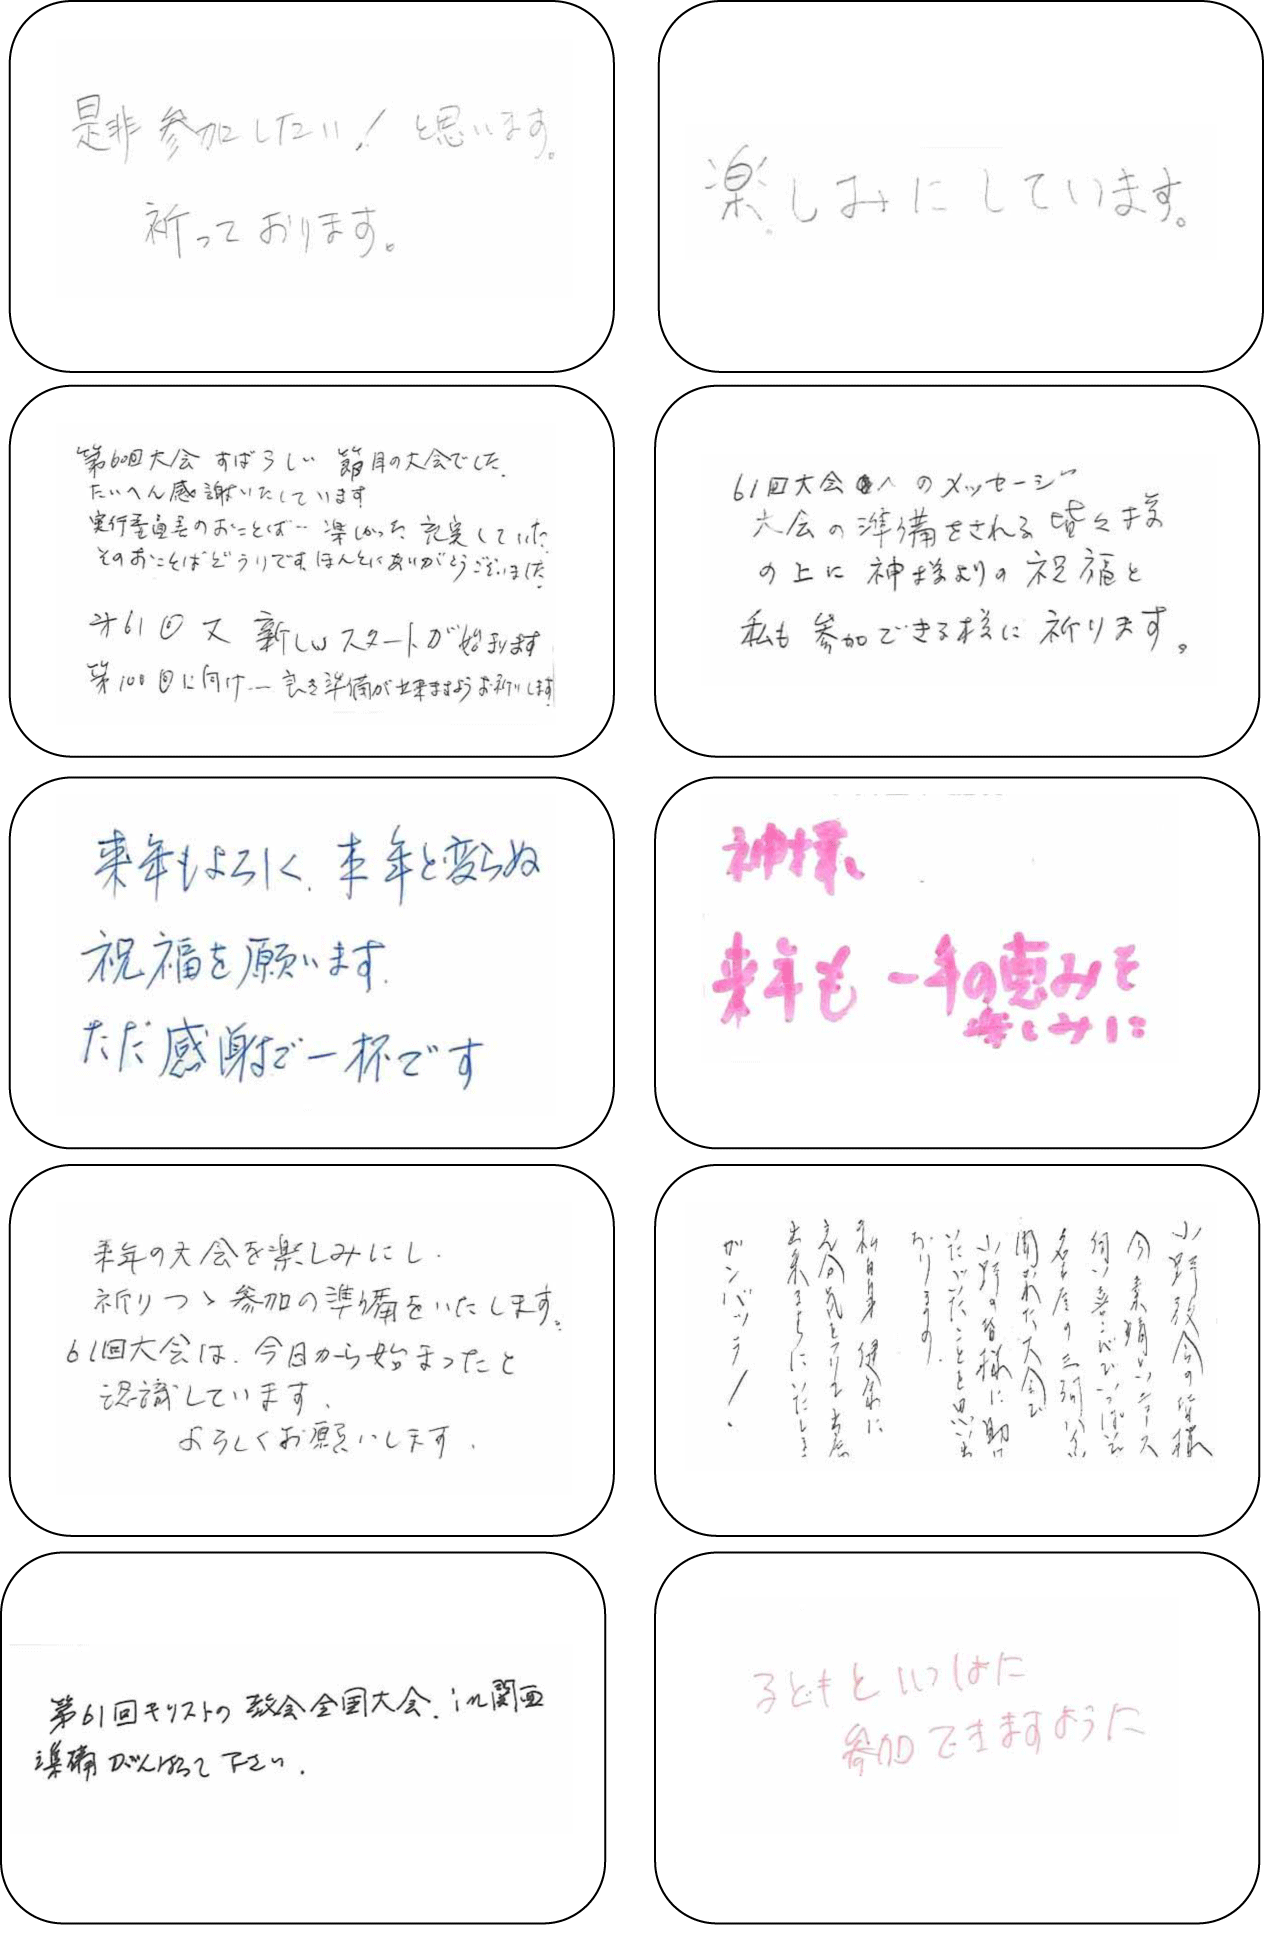 是非参加したい！と思います。
祈っております。
楽しみにしています。
第60回大会 すばらしい 節目の大会でした。
たいへん感謝いたしています
実行委員長のおことば… 楽しかった 充実していた
そのおことばどうりです。ほんとにありがとうございました
才61回 又 新しいスタートが始まります
第100回に向け― 良き準備が出来ますようお祈りします
61回大会へのメッセージ
大会の準備をされる皆々様
の上に 神様よりの祝福と
私も参加できる様に祈ります。
来年もよろしく、本年と変らぬ
祝福を願います。
ただ感謝で一杯です
神様、
来年も 一年の恵みを
楽しみに
来年の大会を楽しみにし.
祈りつゝ参加の準備をいたします。
61回大会は、今日から始まったと
認識しています.
よろしくお願いします.
小野教会の皆様
今 素晴しいニュース
伺い喜こびでいっぱいです
名古屋の三河ハイツ
開かれた大会で
小野の皆様に助け
いただいたことを思い出
おります。
私自身 健康に
気をつけて 出席
出来るようにいたしま
ガンバッテ！.
第61回キリストの教会全国大会. in関西
準備がんばって下さい.
子どもといっしょに
参加できますように